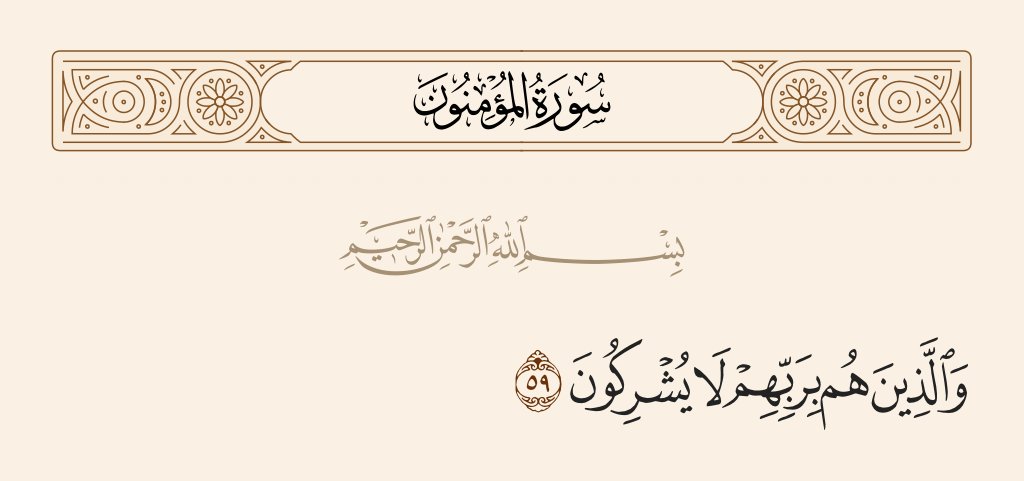 سُورَةُ المُؤْمِنُونَ
بِسْمِ ٱللَّهِ ٱلرَّحْمَٰنِ ٱلرَّحِيمِ
وَٱلَّذِينَ هُم بِرَبِّهِمْ لَا يُشْرِكُونَ ٥٩